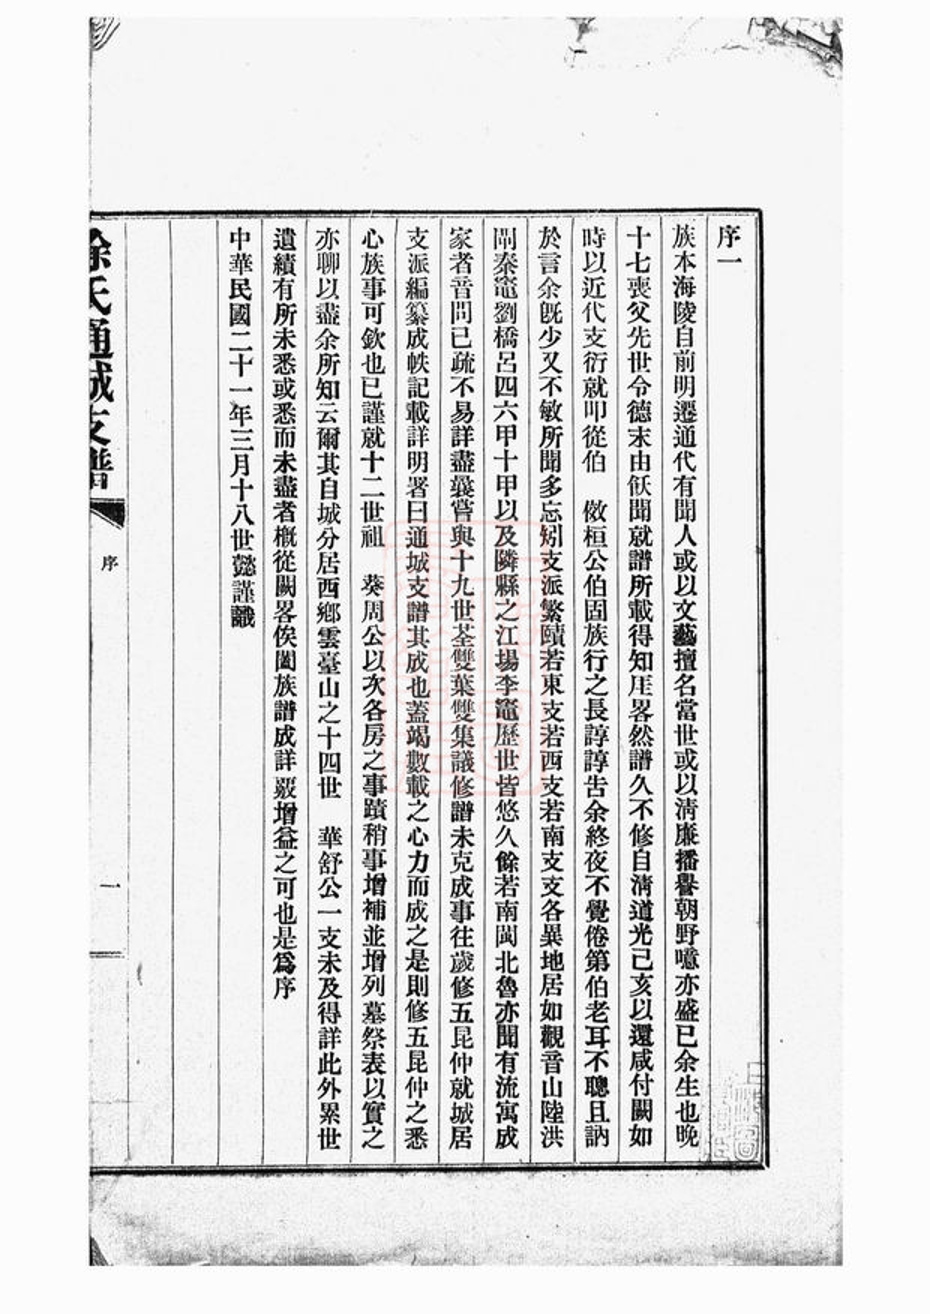 序一
族本海陵自前明遷通代有聞人或以文藝擅名當世或以淸廉播譽朝野噫亦盛已余生也晚
十七喪父先世令德末由飫聞就譜所載得知厓畧然譜久不修自淸道光己亥以還咸付闕如
時以近代支衍就叩從伯 儆桓公伯固族行之長諄諄吿余終夜不覺倦第伯老耳不聰且訥
於言余旣少又不敏所聞多忘矧支派繁賾若東支若西支若南支支各異地居如觀音山陸洪
閘秦竈劉橋呂四六甲十甲以及隣縣之江場李竈歷世皆悠久餘若南閩北魯亦聞有流寓成
家者音問已疏不易詳盡曩嘗與十九世荃雙葉雙集議修譜未克成事往歲修五昆仲就城居
支派編纂成帙記載詳明署曰通城支譜其成也蓋竭數載之心力而成之是則修五昆仲之悉
心族事可欽也已謹就十二世祖 葵周公以次各房之事蹟稍事增補並增列墓祭表以實之
亦聊以盡余所知云爾其自城分居西鄉雲臺山之十四世 華舒公一支未及得詳此外累世
遺績有所未悉或悉而未盡者槪從闕畧俟闔族譜成詳覈增益之可也是爲序
中華民國二十一年三月十八世懿謹識
徐氏通城支譜
序
一